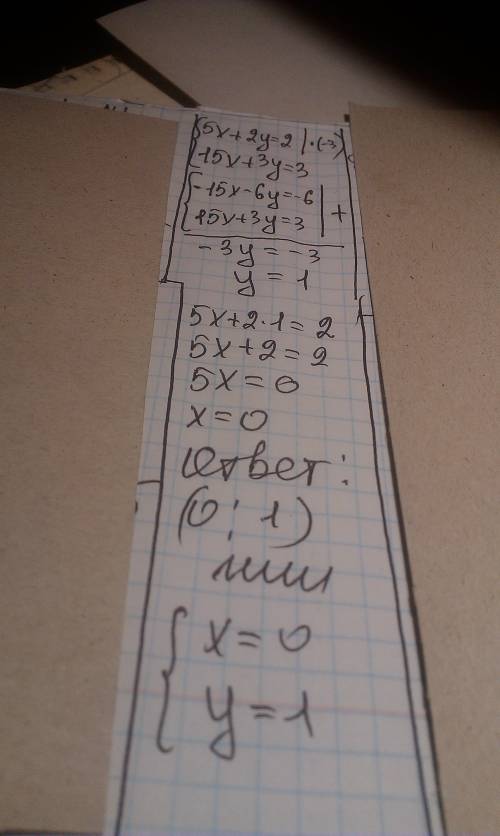 {5x+2y=2 | ·(-3)
{15x+3y=3
{-15x-6y=-6 | +
{15x+3y=3
-3y=-3
y=1
5x+2·1=2
5x+2=2
5x=0
x=0
Ответ:
(0; 1)
или
{x=0
{y=1